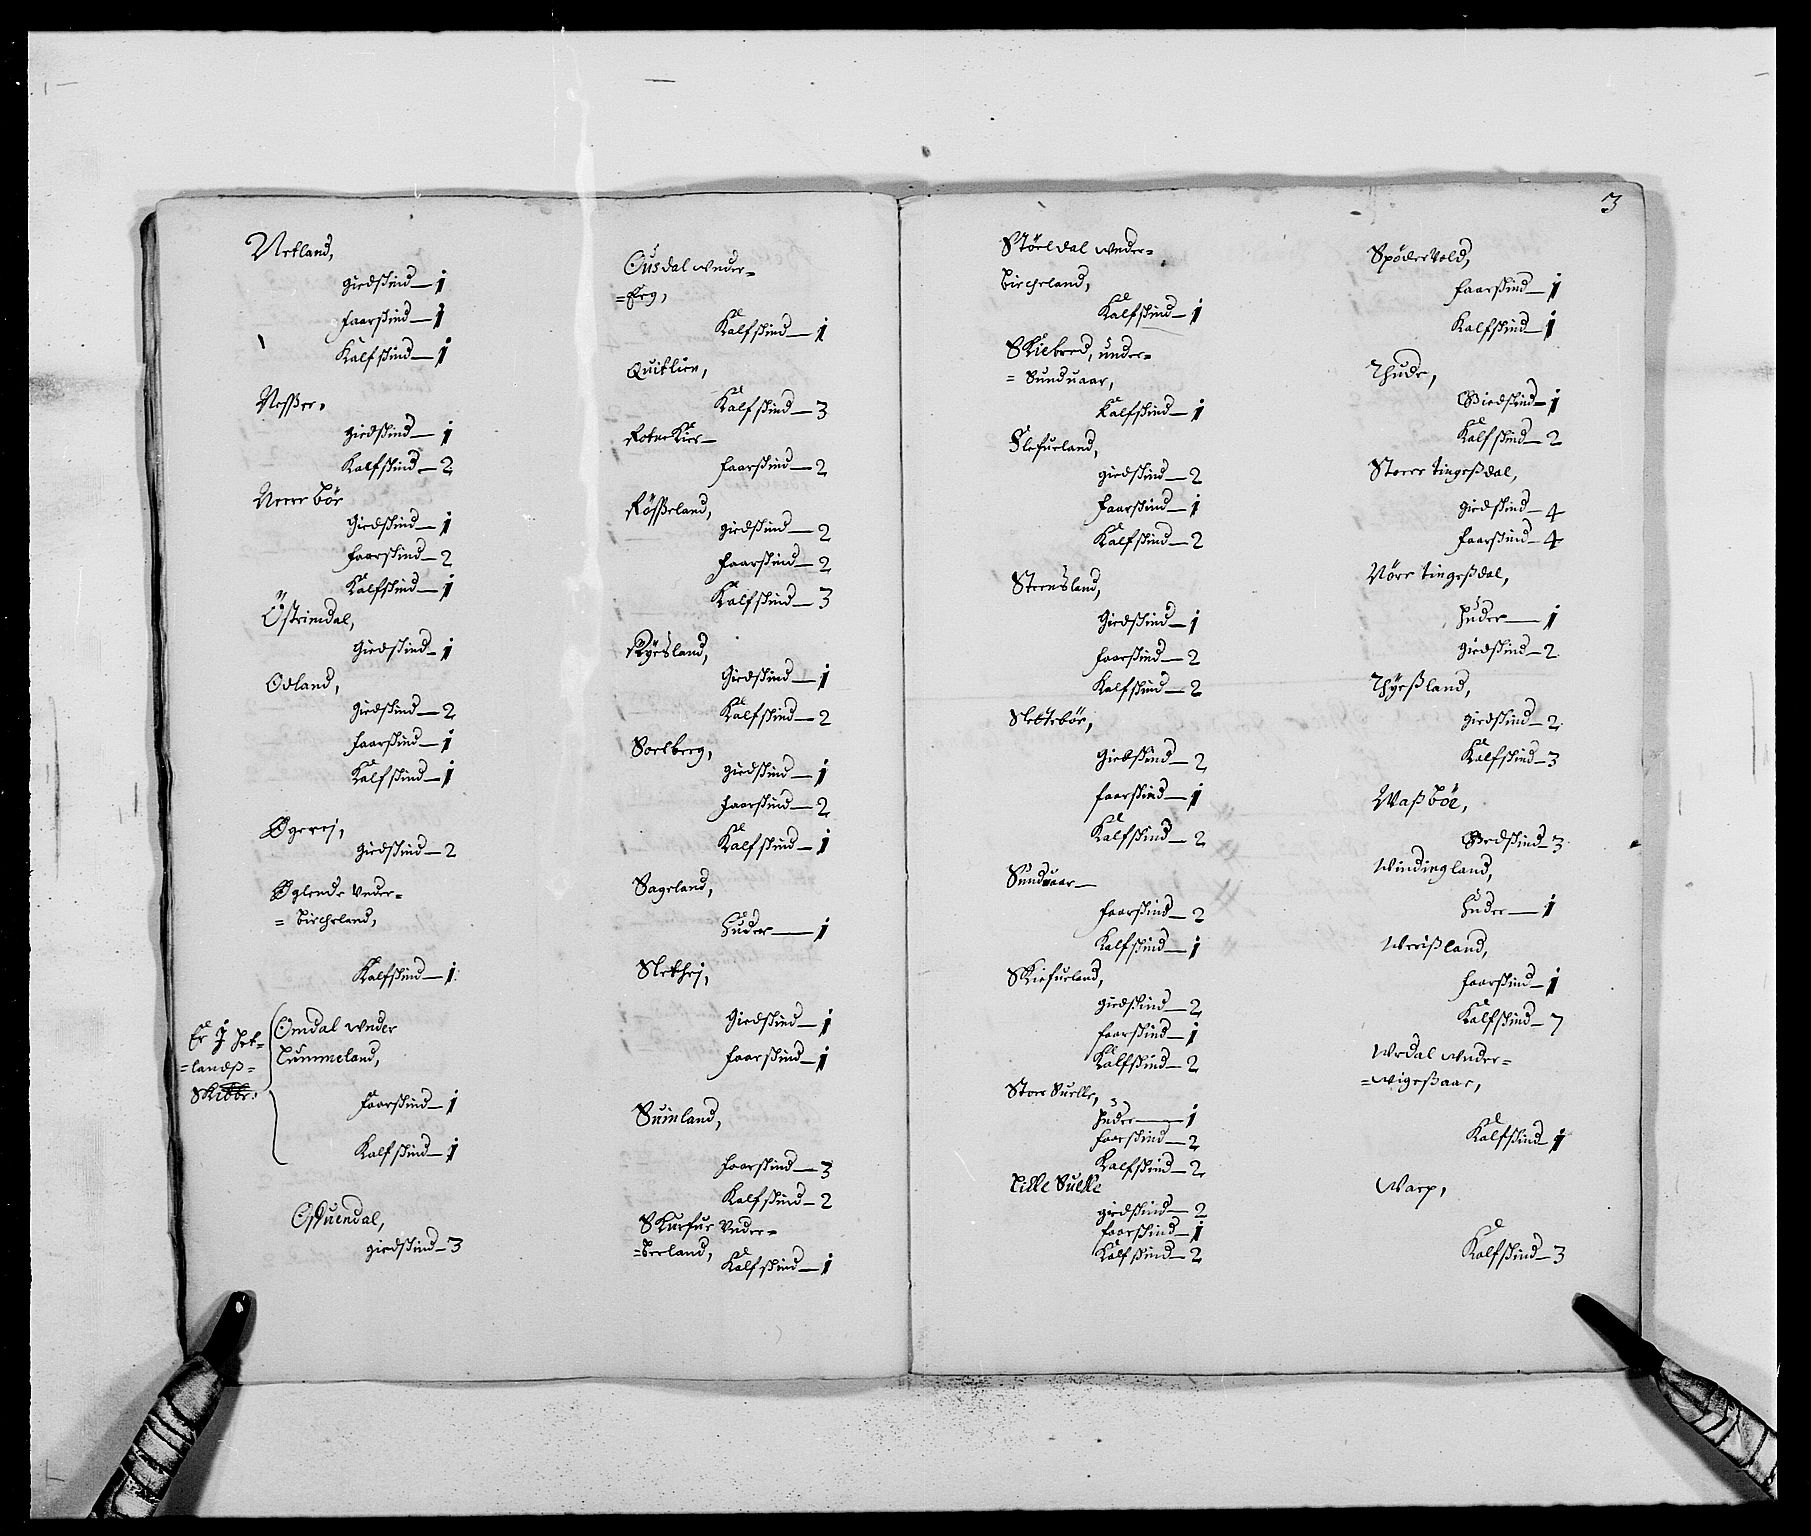 Netland,
giedskind — 1
faarskind — 1
Kalfskind — 1
Nesser,
giedskind — 1
Kalfskind — 2
Neerebör
Giedskind — 1
faarskind — 2
Kalfskind — 1
Östrimdal,
Giedskind — 1
Odland,
Giedskind — 2
faarskind — 1
Kalfskind — 1
Øgerej,
giedskind — 2
Øglende Vnder-
= bircheland,
Kalfskind — 1
Er J Het-
=landß-
Skibbr:
Omdal wnder
Lummeland,
faarskind — 1
Kalfskind — 1
giedskind — 3
Ousdal wnder-
=Eeg,
Kalfskind — 1
Quitlien,
Kalfskind — 3
faarskind — 2
Rößeland,
giedskind — 2
faarskind — 2
Kalfskind — 3
Ryesland,
Giedskind — 1
Kalfskind — 2
Soelberg,
giedskind — 1
faarskind — 2
Kalfskind — 1
Sageland,
Huder — 1
Slethej,
Giedskind — 1
faarskind — 1
Suinland,
faarskind — 3
Kalfskind — 2
Skurfue Vnder-
Kalfskind — 1
3
Störldal wnder-
bircheland,
Kalfskind — 1
Skiebrod, under-
= Sunduaar,
Kalfskind — 1
Slefueland,
giedskind — 2
faarskind — 1
Kalfskind — 2
Steensland,
Giedskind — 1
faarskind — 2
Kalfskind — 2
Slettebör,
Giedskind — 2
faarskind — 1
Kalfskind — 2
Sunduaar —
faarskind — 2
Kalfskind — 1
Skiefueland,
giedskind — 2
faarskind — 1
Kalfskind — 2
Stoer Suelle,
Huder — 1
faarskind — 2
Kalfskind — 2
Lille Suelle
giedskind — 2
faarskind — 1
Kalfskind — 2
Spödervold,
faarskind — 1
Kalfskind — 1
Thude,
Giedskind — 1
Kalfskind — 2
Stoere tingeßdal,
giedskind — 4
faarskind — 4
Nörre tingeßdal,
Huder — 1
giedskind — 2
Thyeßland,
giedskind — 2
Kalfskind — 3
Waßböe,
Giedskind — 3
Windingland,
Huder — 1
Werißland,
faarskind — 1
Kalfskind — 7
Wrdal wnder=
=wigeßaar,
Kalfskind — 1
Warp,
Kalfskind — 3